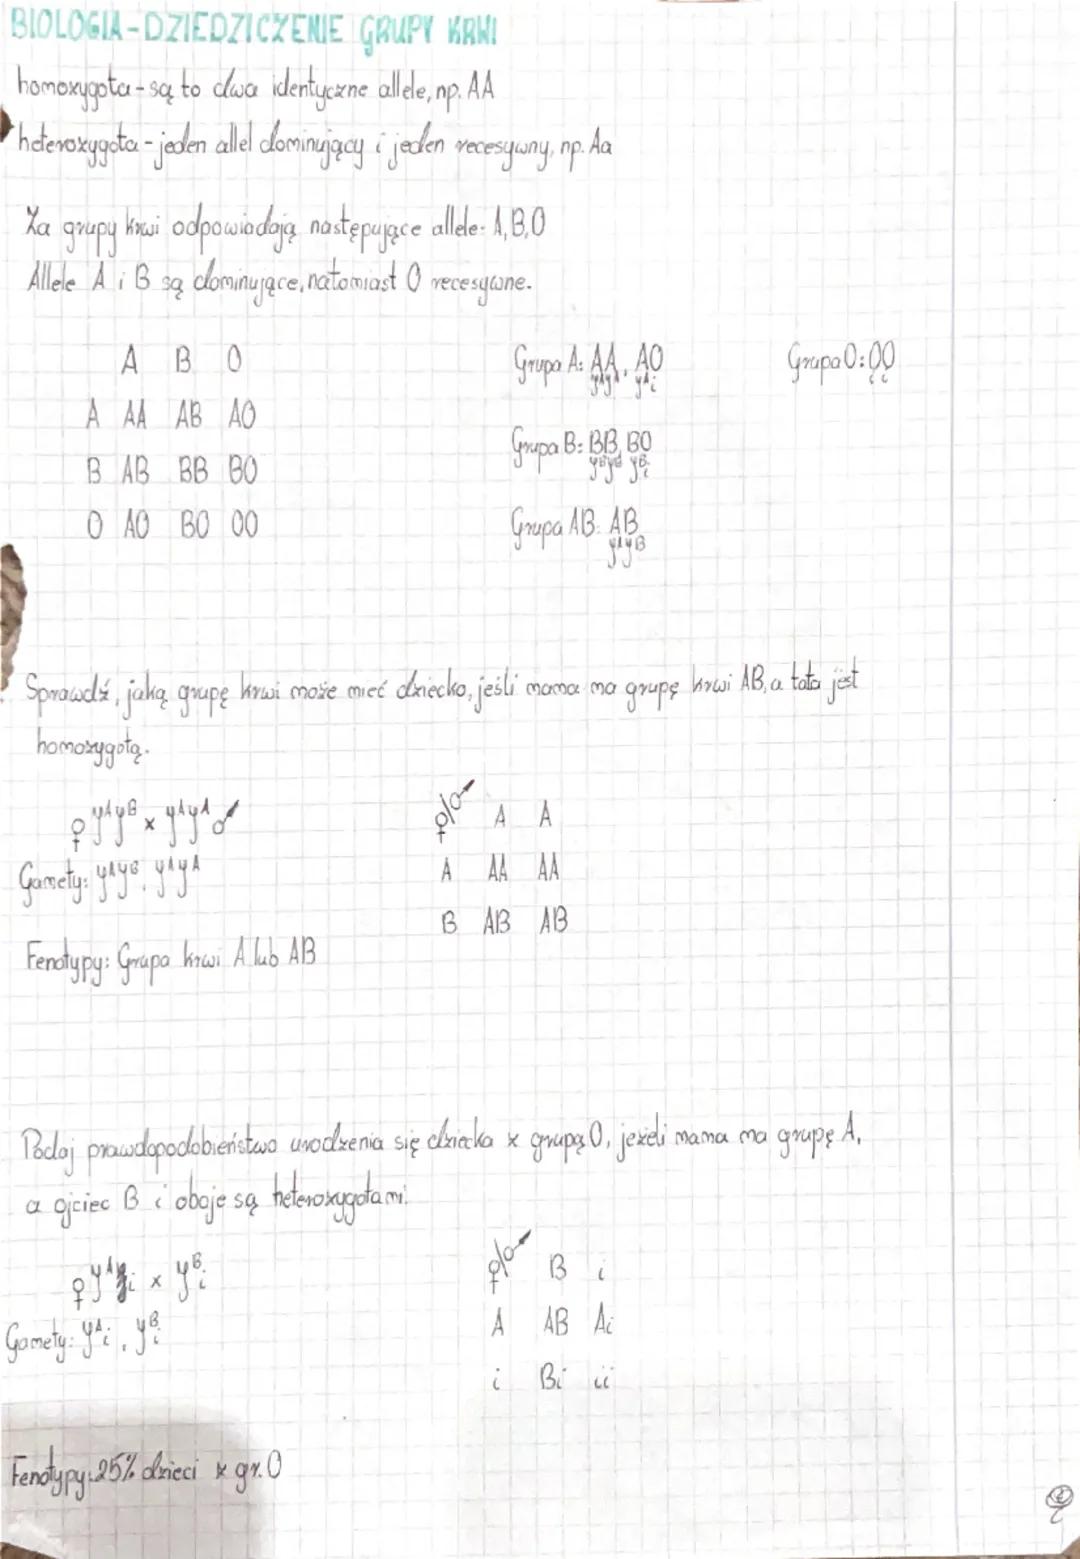 BIOLOGIA - DZIEDZICZENIE GRUPY KRWI
homozygota - są to dwa identyczne allele, np. AA
heterozygota - jeden allel dominujący i jeden recesywny, np. Aa
Za grupy krwi odpowiadają następujące allele: A, B, O
Allele A i B są dominujące, natomiast O recesywne.
A B O
A AA AB AO
B AB BB BO
O AO BO OO
Grupa A: AA, AO
yAyA yAi
Grupa B: BB, BO
yByB yBi
Grupa AB: AB
yAyB
Grupa O: OO
i i
Sprawdź, jaką grupę krwi może mieć dziecko, jeśli mama ma grupę krwi AB, a tata jest
homozygotą.
♀ yAyB x yAyA ♂
Gamety: yAyB, yAyA
Fenotypy: Grupa krwi A lub AB
♀/♂ A A
A AA AA
B AB AB
Podaj prawdopodobieństwo urodzenia się dziecka z grupą O, jeżeli mama ma grupę A,
a ojciec B i oboje są heterozygotami.
♀ yAi x yBi
Gamety: yAi, yBi
♀/♂ B i
A AB Ai
i Bi ii
Fenotypy: 25% dzieci z gr. O